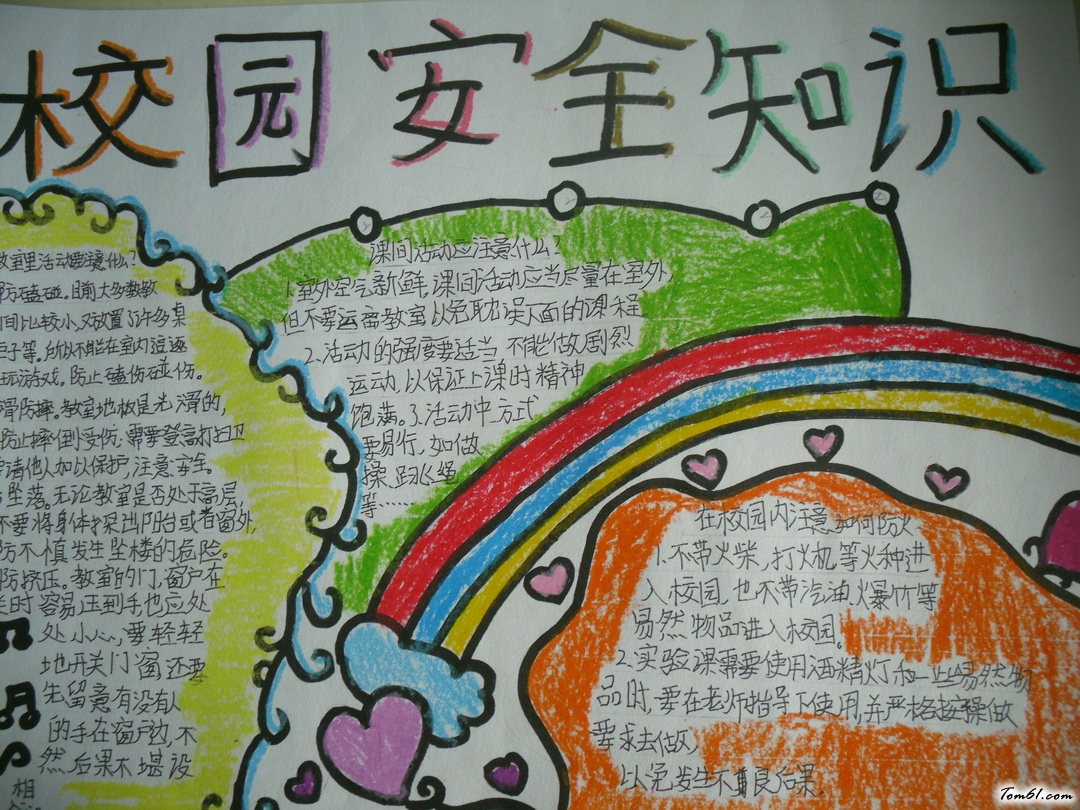 校园安全知识
教室里活动要注意什么?
防磕碰。目前大多数教
间比较小,又放置了许多桌
等。所以不能在室内追逐
玩游戏。防止磕伤碰伤。
滑防摔。教室地板是光滑的,
防止摔倒受伤;需要登高打扫卫
请他人加以保护,注意安全。
坠落。无论教室是否处于高层
不要将身体探出阳台或者窗外,
防不慎发生坠楼的危险。
防挤压。教室的门、窗户在
时容易压到手,也应处
处小心,要轻轻
地开关门窗,还要
先留意有没有人
的手在窗户边,不
然,后果不堪设
相
课间活动应注意什么?
1.室外空气新鲜,课间活动应当尽量在室外,
但不要远离教室,以免耽误下面的课程。
2.活动的强度要适当,不能做剧烈
运动,以保证上课时精神
饱满。3.活动中方式
要易行,如做
操、跳飞绳
等……
在校园内注意如何防火
1.不带火柴,打火机等火种进
入校园,也不带汽油、爆竹等
易然物品进入校园。
2.实验课需要使用酒精灯和一些易然物
品时,要在老师指导下使用,并严格按操做
要求去做,
以免发生不良后果.
Tom61.com